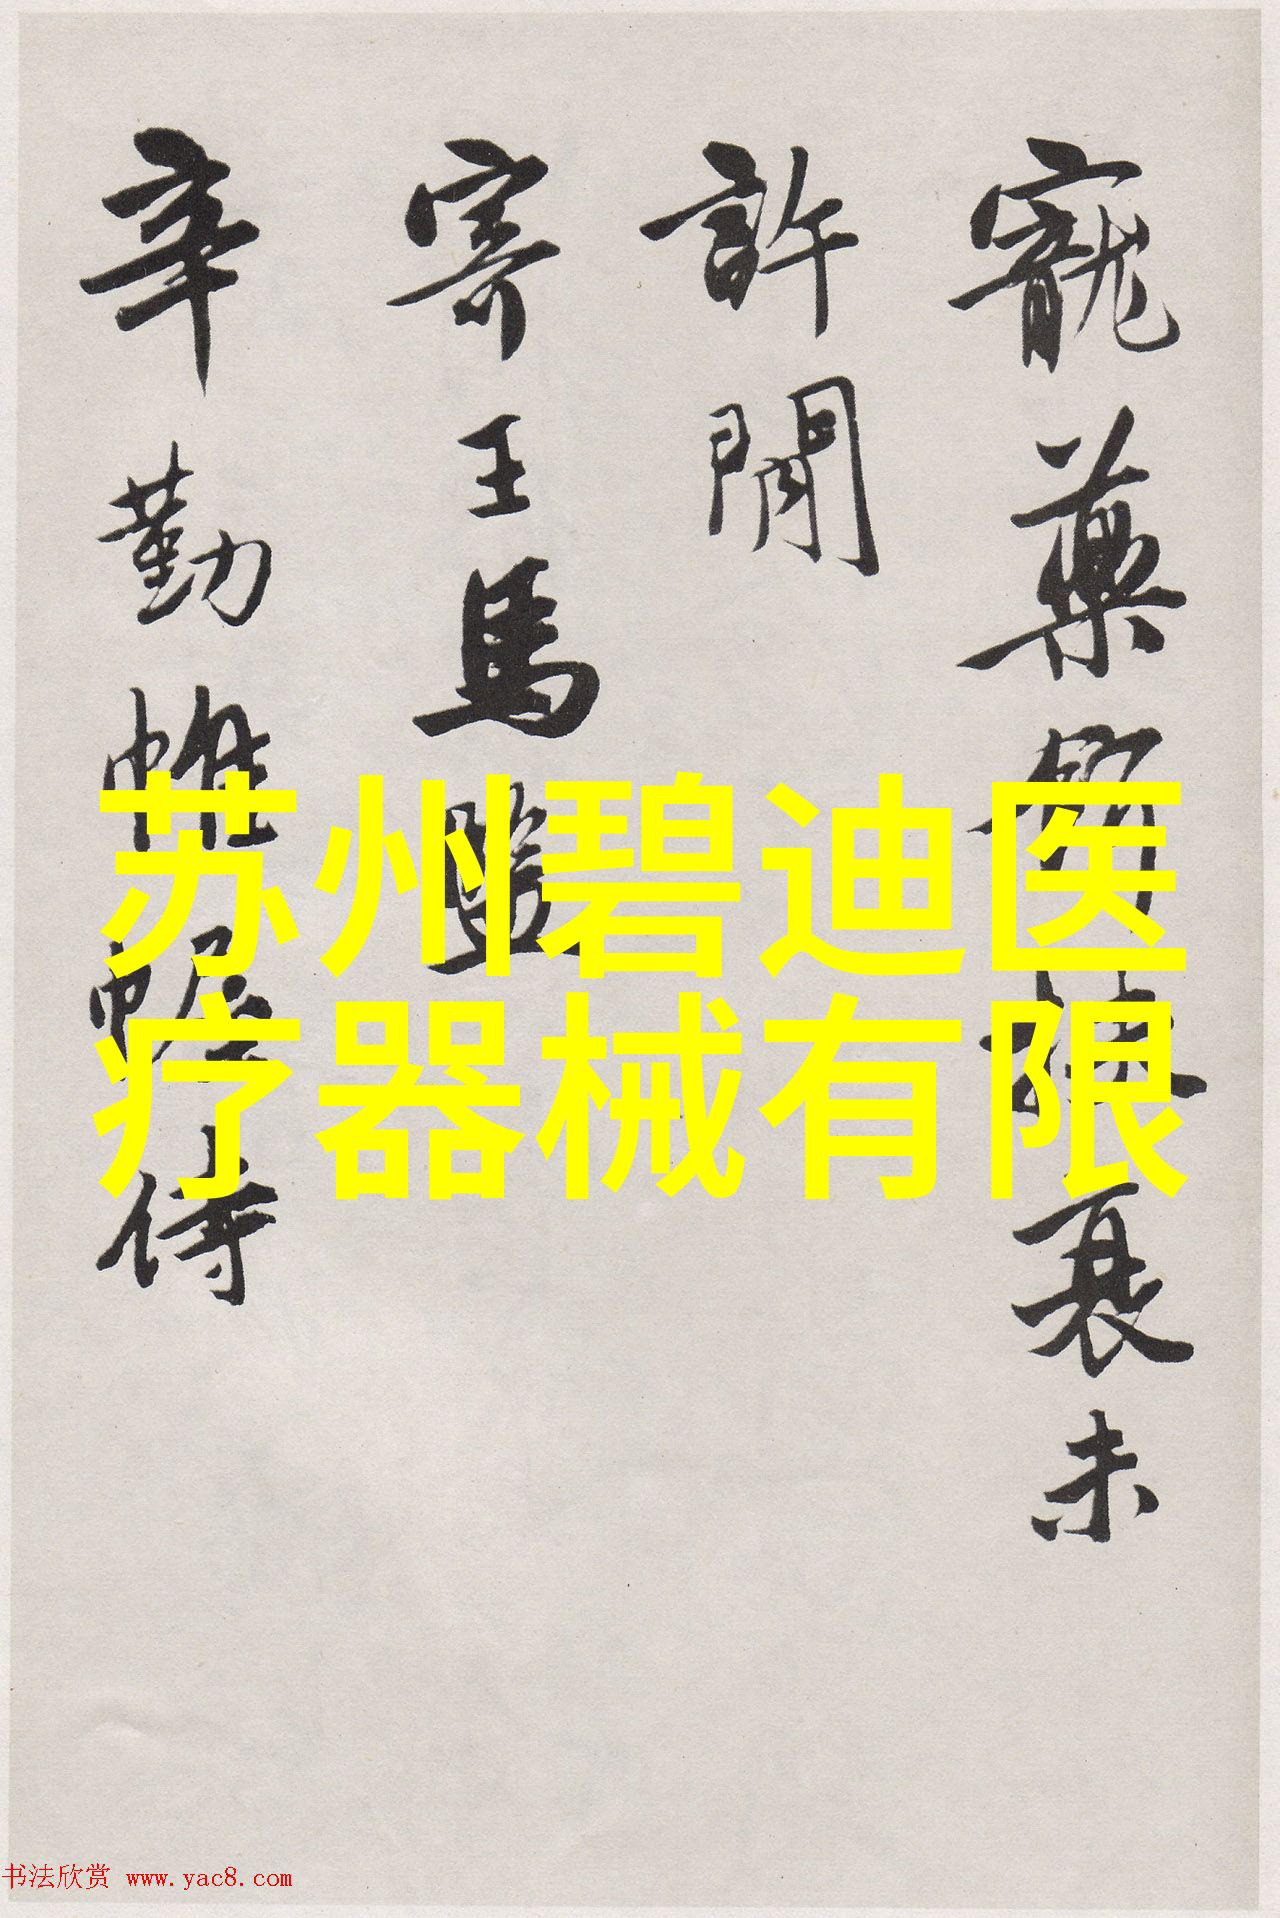 寵藥餌扶衰未
許閒
寄王馬監
辛勤帷幄侍
苏州碧迪医
疗器械有限
书法欣赏 www.yac8.com